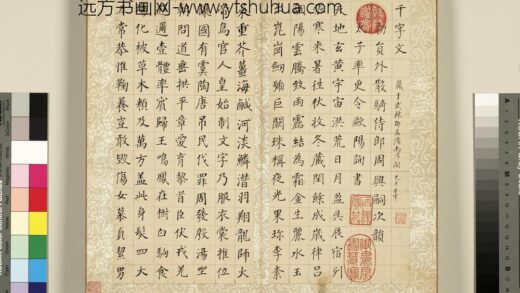 远方书画网-www.yfshuhua.com
千字文
勑員外散騎侍郎周興嗣次韻
太子率更令歐陽詢書
天地玄黃宇宙洪荒日月盈昃辰宿列
張寒來暑往秋收冬藏閏餘成歲律呂
調陽雲騰致雨露結為霜金生麗水玉
出崑崗劍號巨闕珠稱夜光果珍李柰
菜重芥薑海鹹河淡鱗潛羽翔龍師火
帝鳥官人皇始制文字乃服衣裳推位
讓國有虞陶唐弔民伐罪周發殷湯坐
朝問道垂拱平章愛育黎首臣伏戎羌
遐邇壹體率賓歸王鳴鳳在樹白駒食
場化被草木賴及萬方蓋此身髮四大
五常恭惟鞠養豈敢毀傷女慕貞絜男